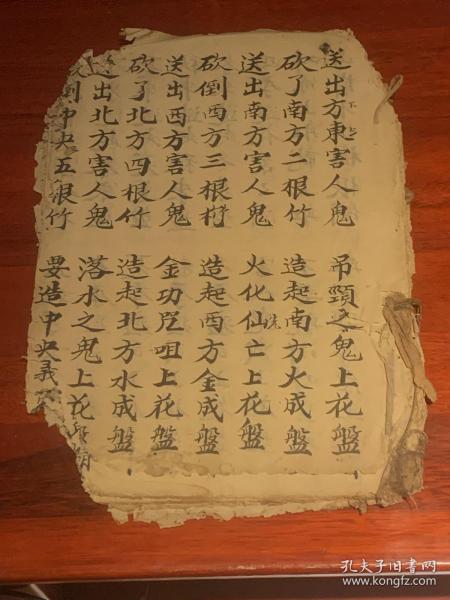 送出方東害人鬼 吊頸之鬼上花盤
砍了南方二根竹 造起南方火成盤
送出南方害人鬼 火化仙亡上花盤
砍倒西方三根竹 造起西方金成盤
送出西方害人鬼 金功咀上花盤
砍了北方四根竹 造起北方水成盤
送出北方害人鬼 落水之鬼上花
倒中央五根竹 要造中央
孔夫子旧书网
www.kongfz.com